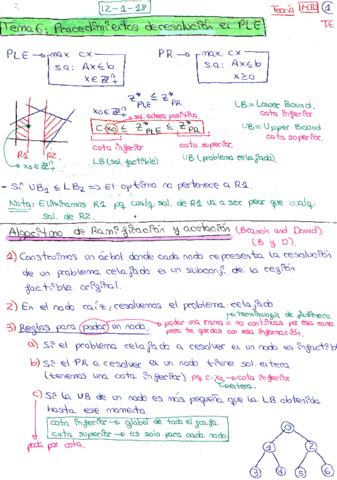 12-1-18
Teoría IMIO 1
Tema 6: Procedimientos de resolución en PLE
TE
PLE → max cx
s.a: Ax≤b
x∈Z^n_+
PR → max cx
s.a: Ax≤b
x≥0
Z*_PLE ≤ Z*_PR
x0∈Z^n_+ sol. entera positiva.
C(x0) ≤ Z*_PLE ≤ Z*_PR
cota inferior cota superior
LB (sol factible) UB (problema relajado).
LB = Lower Bound.
cota inferior
UB = Upper Bound
cota superior.
R1 R2
x0∈Z^n_+
- Si UB1 ≤ LB2 ⇒ El óptimo no pertenece a R1.
Nota: Eliminamos R1 pq cualq. sol. de R1 va a ser peor que cualq.
sol. de R2.
Algoritmo de Ramificación y acotación (Branch and Bound)
(B y D).
1) Construimos un árbol donde cada nodo representa la resolución
de un problema relajado en un subconj. de la región
factible original.
2) En el nodo raíz, resolvemos el problema relajado
→ terminología de
3) Reglas para podar un nodo.
→ podar una rama = no continúas por esa rama
para te quedas con esa información.
a) Si el problema relajado a resolver es un nodo es infactible
b) Si el PR a resolver es un nodo tiene sol. entera
(tenemos una cota inferior) pq c·x0 → cota inferior
entera.
c) Si la UB de un nodo es más pequeña que la LB obtenida
hasta ese momento.
cota inferior → global de todo el grafo
cota superior → es solo para cada nodo.
poda por cota.
0
1 2
3 4 5 6